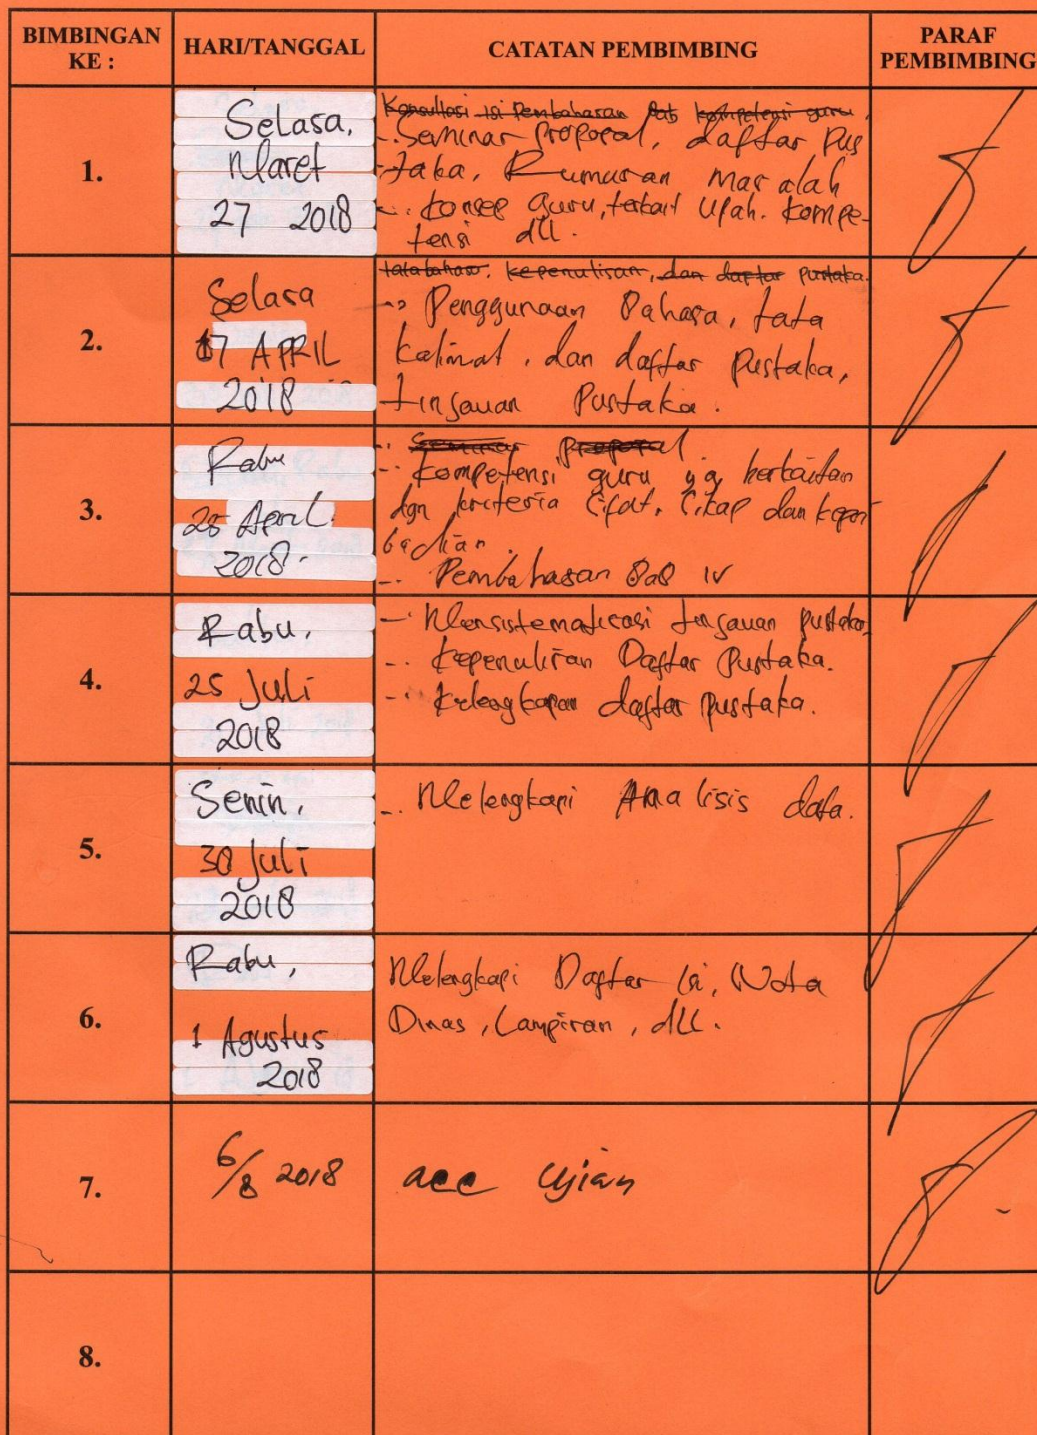 BIMBINGAN KE :
HARI/TANGGAL
CATATAN PEMBIMBING
PARAF PEMBIMBING
1.
Selasa,
Maret
27 2018
Konsultasi isi Pembahasan kompetensi guru
- Seminar Proposal, daftar Pus
taka, Rumusan masalah
- Konsep Guru, terkait Upah. Kompe-
tensi dll.
2.
Selasa
17 APRIL
2018
tatabahasa, kepenulisan, dan daftar pustaka.
-> Penggunaan Bahasa, tata
kalimat, dan daftar pustaka,
tinjauan Pustaka.
3.
Rabu
April
2018.
- Seminar proposal
- Kompetensi guru yg berkaitan
dgn kriteria Sifat, Sikap dan kepri
badian.
- Pembahasan Bab IV
4.
Rabu,
25 Juli
2018
- Mensistematisasi tinjauan pustaka
- Kepenulisan Daftar Pustaka.
- Kelengkapan daftar pustaka.
5.
Senin,
30 Juli
2018
- Melengkapi Analisis data.
6.
Rabu,
1 Agustus
2018
Melengkapi Daftar isi, Nota
Dinas, Lampiran, dll.
7.
6/8 2018
acc Ujian
8.